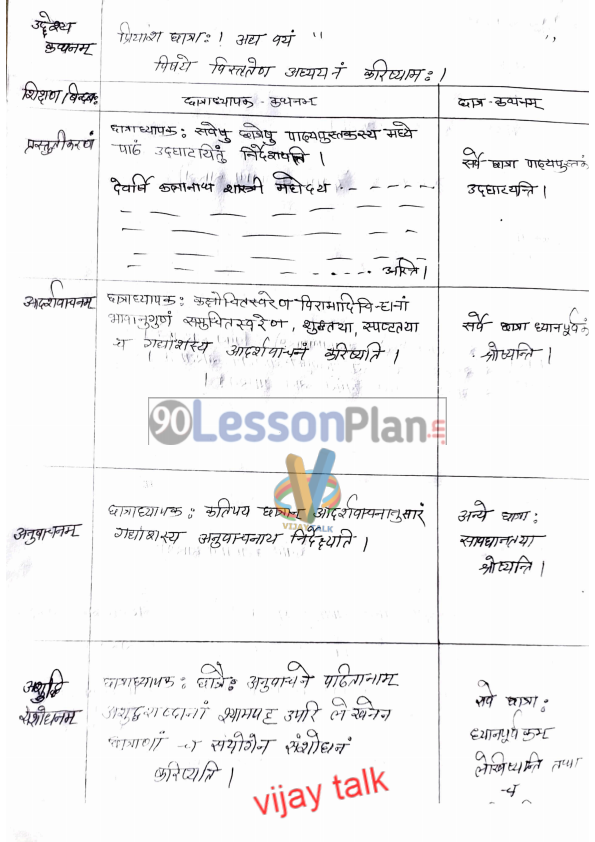 उद्देश्य
कथनम्
प्रियांश छात्राः! अद्य वयं "
विषये विस्तरेण अध्ययनं करिष्यामः।
शिक्षण/बिन्दवः
छात्राध्यापक-कथनम्
छात्र-कथनम्
प्रस्तुतीकरणं
छात्राध्यापकः सर्वेषु छात्रेषु पाठ्यपुस्तकस्य मध्ये
पाठं उद्घाटयितुं निर्देशयति।
सर्वे छात्रा पाठ्यपुस्तकं
उद्घाटयन्ति।
देवर्षि कलानाथ शास्त्री महोदय
अस्ति।
आदर्शवाचनम्
छात्राध्यापकः कक्षोचितस्वरेण विरामादिचिन्हानां
भावानुगुणं समुचितस्वरेण, शुद्धतया, स्पष्टतया
च गद्यांशस्य आदर्शवाचनं करिष्यति।
सर्वे छात्रा ध्यानपूर्वकं
श्रोष्यन्ति।
90LessonPlan
VIJAY TALK
अनुवाचनम्
छात्राध्यापकः कतिपय छात्रान् आदर्शवाचनानुसारं
गद्यांशस्य अनुवाचनाय निर्देक्ष्यति।
अन्ये छात्राः
सावधानतया
श्रोष्यन्ति।
अशुद्धि
संशोधनम्
छात्राध्यापकः छात्रैः अनुवाचने पठितानाम्
अशुद्धशब्दानां श्यामपट्ट उपरि लेखनेन
छात्राणां च सहयोगेन संशोधनं
करिष्यति।
सर्वे छात्राः
ध्यानपूर्वकम
लेखिष्यन्ति तथा
च
vijay talk